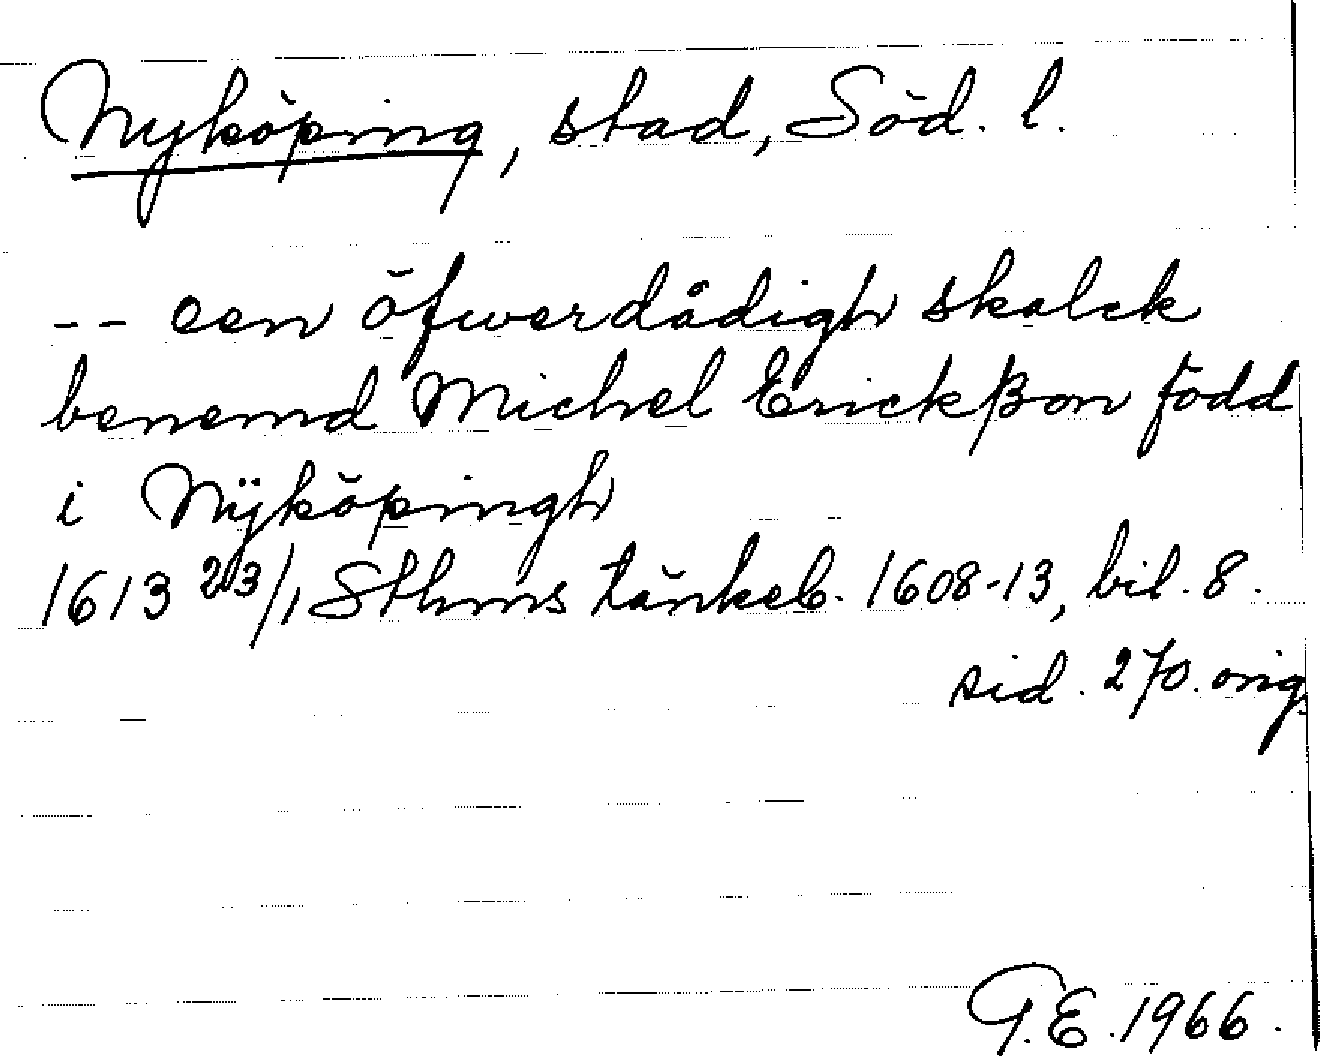 Nyköping, stad, Söd. l.
-- een öfwerdådigh skalck
benemd Michel Erickßon född
i Nÿköpingh
1613 23/1 Sthms tänkeb. 1608-13, bil. 8.
sid. 270. orig.
G.E. 1966.